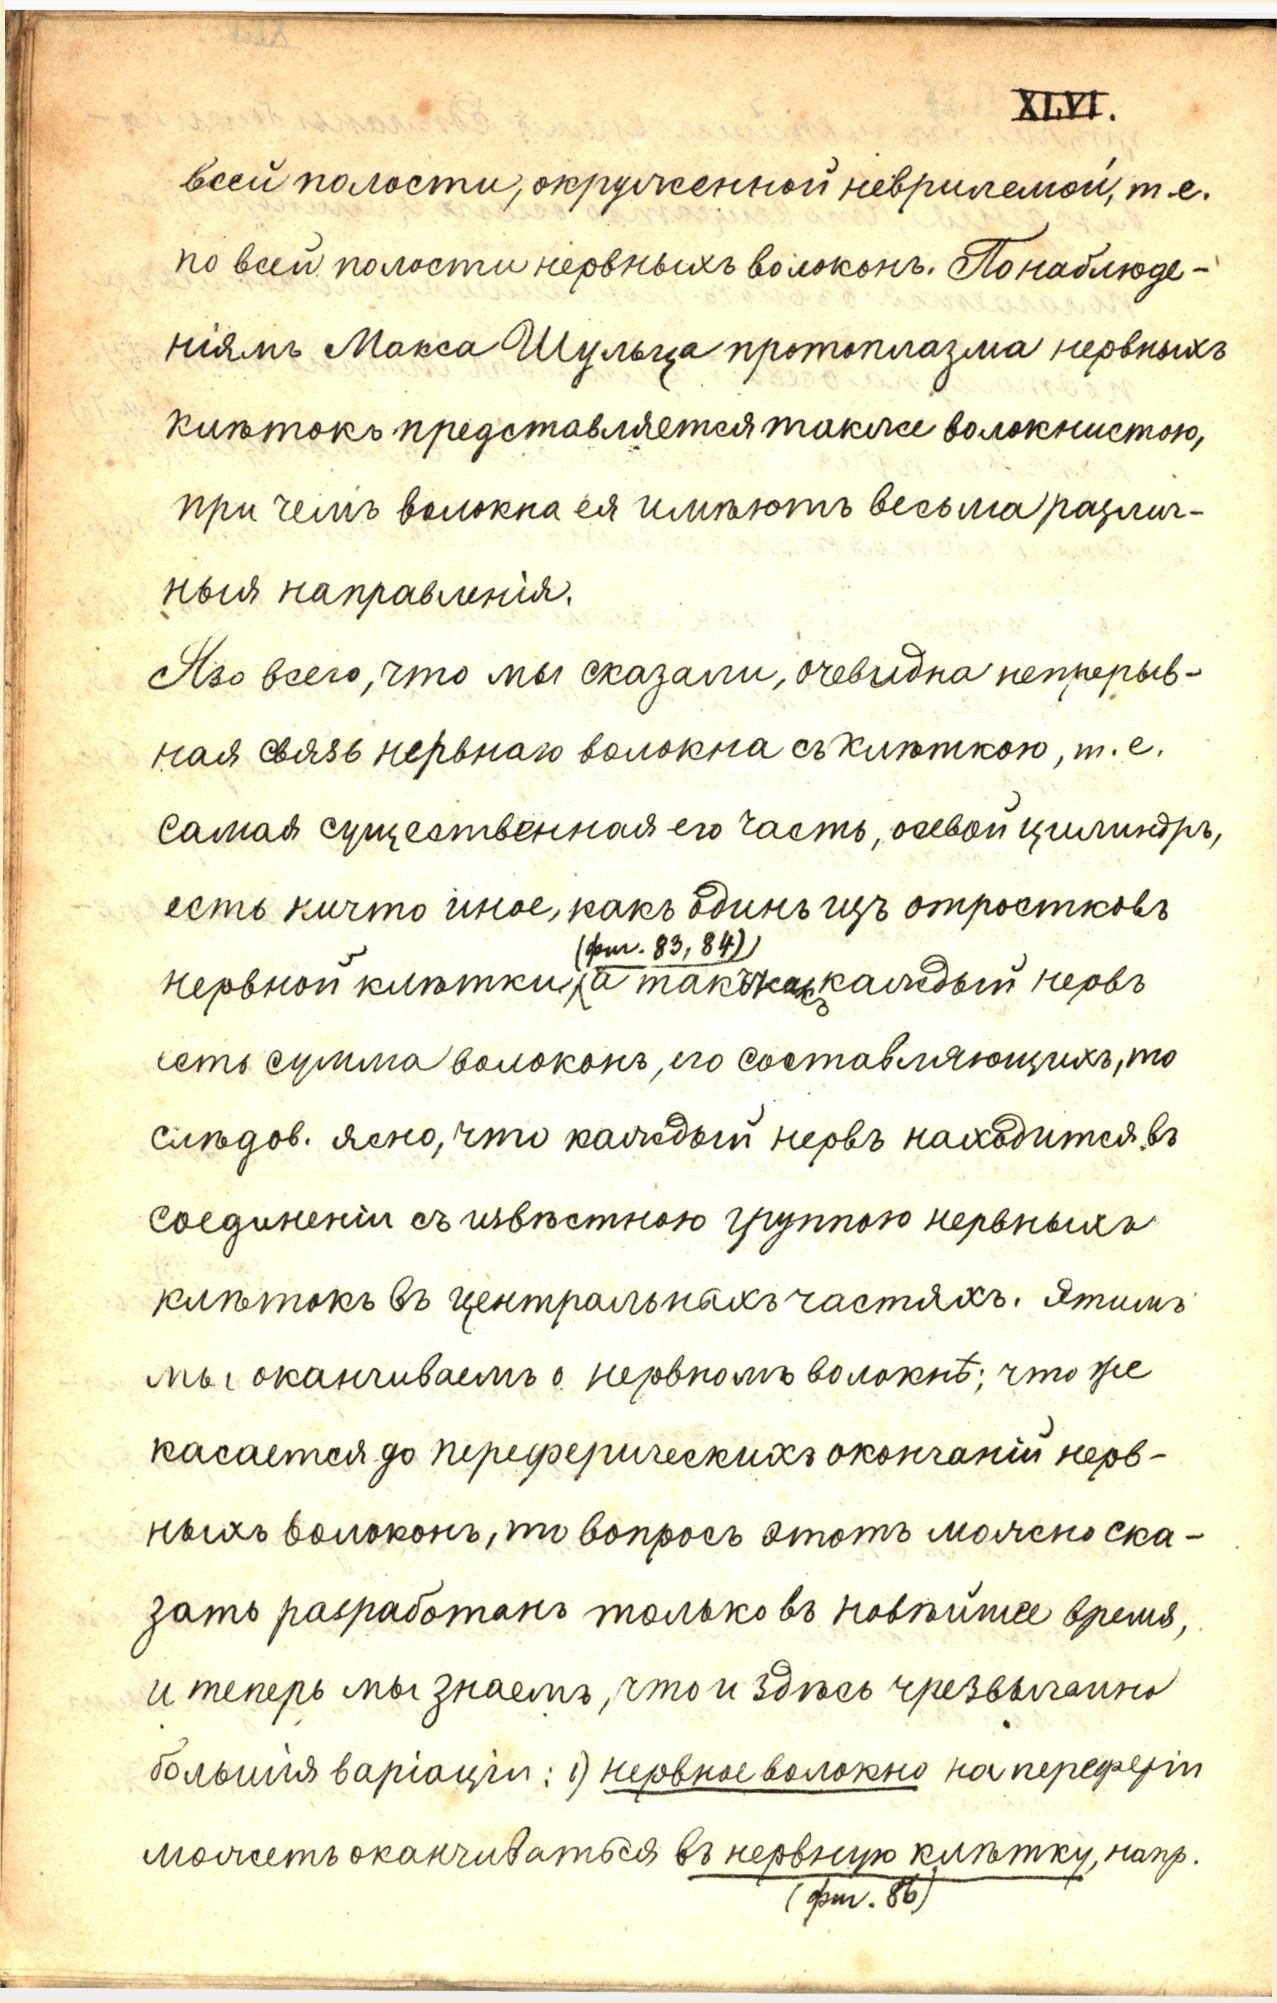 XLVI.
всей полости, окруженной неврилемой, т. е.
по всей полости нервныхъ волоконъ. По наблюде-
ніямъ Макса Шульца протоплазма нервныхъ
клѣтокъ представляется также волокнистою,
при чемъ волокна ея имѣютъ весьма различ-
ныя направленія.
Изо всего, что мы сказали, очевидна непрерыв-
ная связь нервнаго волокна съ клѣткою, т. е.
самая существенная его часть, осевой цилиндръ,
есть ничто иное, какъ одинъ изъ отростковъ
(фиг. 83, 84)
нервной клѣтки, а такъ какъ каждый нервъ
есть сумма волоконъ, его составляющихъ, то
слѣдов. ясно, что каждый нервъ находится въ
соединеніи съ извѣстною группою нервныхъ
клѣтокъ въ центральныхъ частяхъ. Этимъ
мы оканчиваемъ о нервномъ волокнѣ; что же
касается до переферическихъ окончаній нерв-
ныхъ волоконъ, то вопросъ этотъ можно ска-
зать разработанъ только въ новѣйшее время,
и теперь мы знаемъ, что и здѣсь чрезвычайно
большія варіаціи: 1) нервное волокно на переферіи
можетъ оканчиваться въ нервную клѣтку, напр.
(фиг. 86)